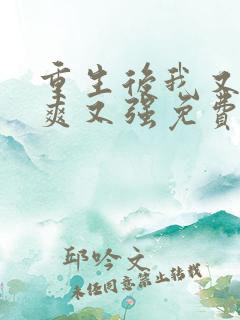 重生后我又
爽又强免费
邱吟文
未经同意禁止转载